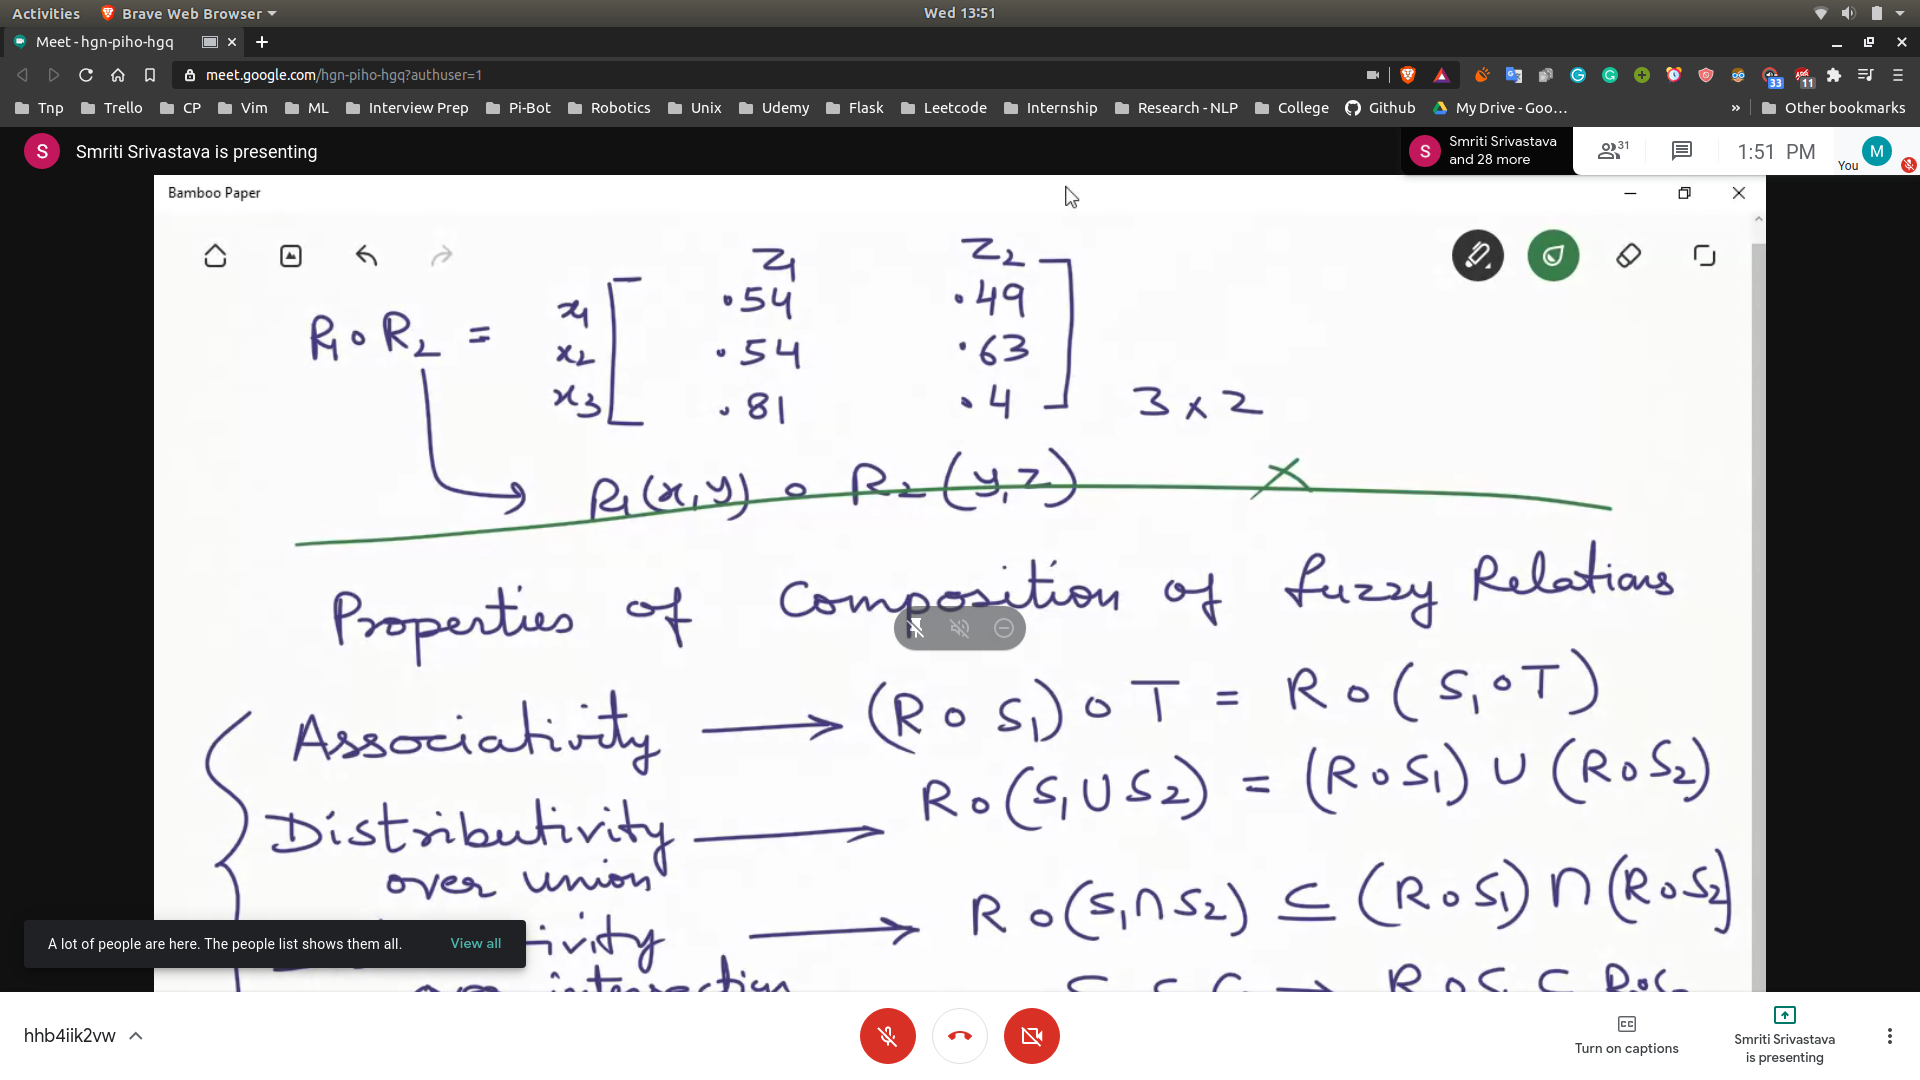 Activities Brave Web Browser Wed 13:51
Meet - hgn-piho-hgq
meet.google.com/hgn-piho-hgq?authuser=1 33 11
Tnp Trello CP Vim ML Interview Prep Pi-Bot Robotics Unix Udemy Flask Leetcode Internship Research - NLP College Github My Drive - Goo... » Other bookmarks
S Smriti Srivastava is presenting
S Smriti Srivastava and 28 more 31 1:51 PM You M
Bamboo Paper
z₁ z₂
R₁ o R₂ =
x₁ .54 .49
x₂ .54 .63
x₃ .81 .4
3 x 2
R₁(x,y) o R₂(y,z) X
Properties of Composition of fuzzy Relations
Associativity → (R o S₁) o T = R o (S₁ o T)
Distributivity over union → R o (S₁ ∪ S₂) = (R o S₁) ∪ (R o S₂)
ivity → R o (S₁ ∩ S₂) ⊆ (R o S₁) ∩ (R o S₂)
intersection
A lot of people are here. The people list shows them all. View all
hhb4iik2vw
Turn on captions
Smriti Srivastava
is presenting